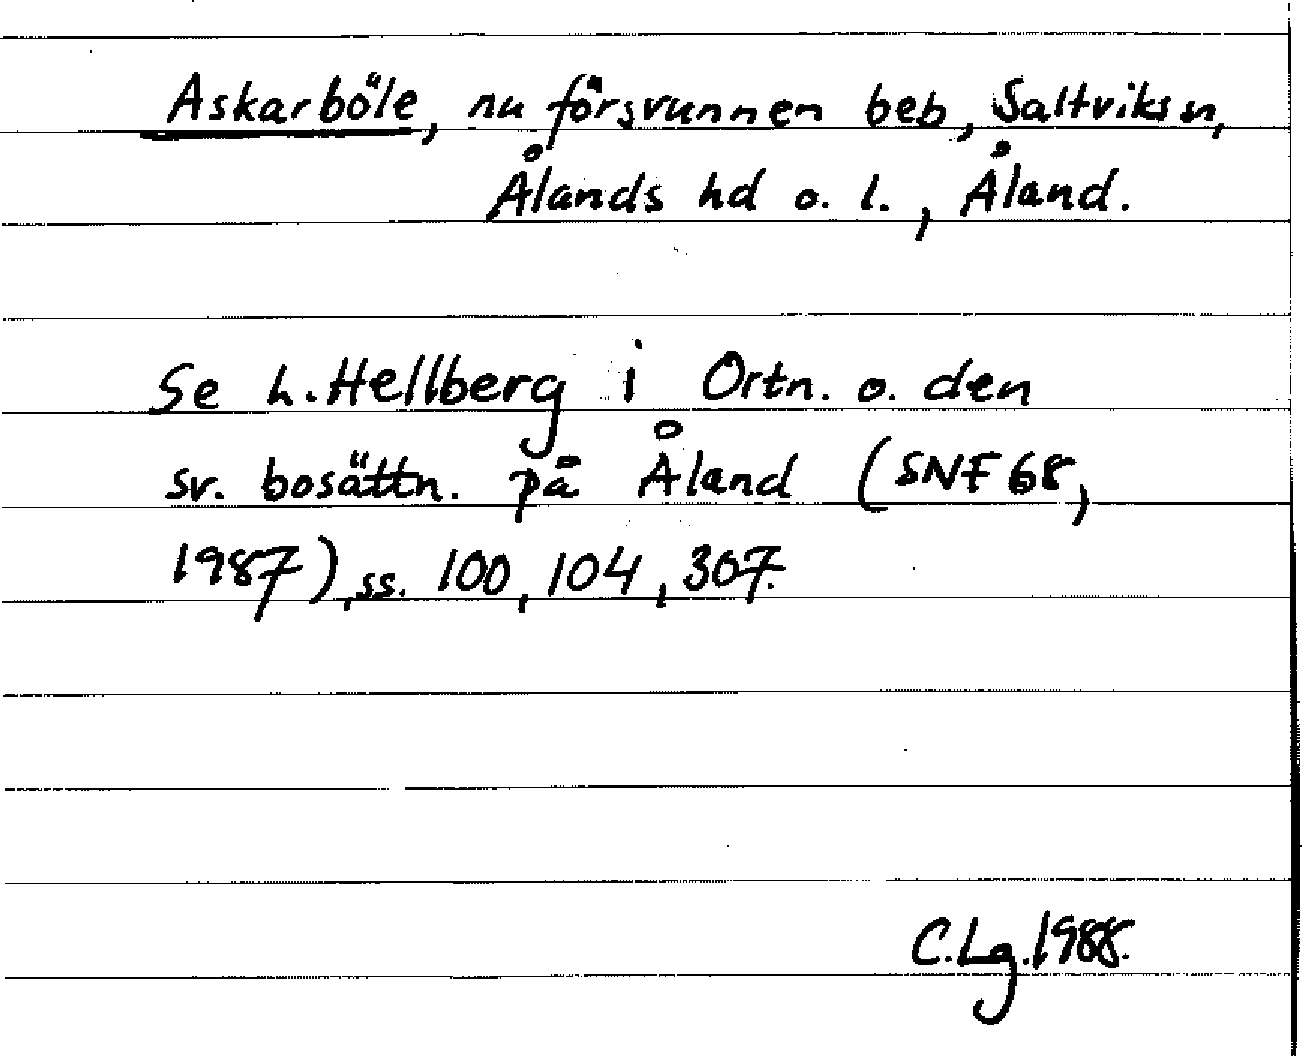 Askarböle, nu försvunnen beb, Saltviks sn,
Ålands hd o. l., Åland.
Se L. Hellberg i Ortn. o. den
sv. bosättn. på Åland (SNF 68,
1987), ss. 100, 104, 307.
C.Lg. 1988.